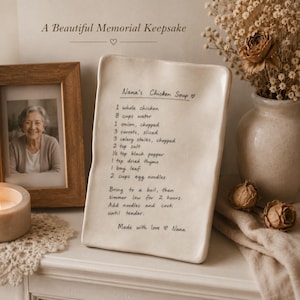 A Beautiful Memorial Keepsake
Nana's Chicken Soup ♡
1 whole chicken
8 cups water
1 onion, chopped
3 carrots, sliced
3 celery stalks, chopped
2 tsp salt
½ tsp black pepper
1 tsp dried thyme
1 bay leaf
2 cups egg noodles
Bring to a boil, then
simmer low for 2 hours.
Add noodles and cook
until tender.
Made with love ♡ Nana